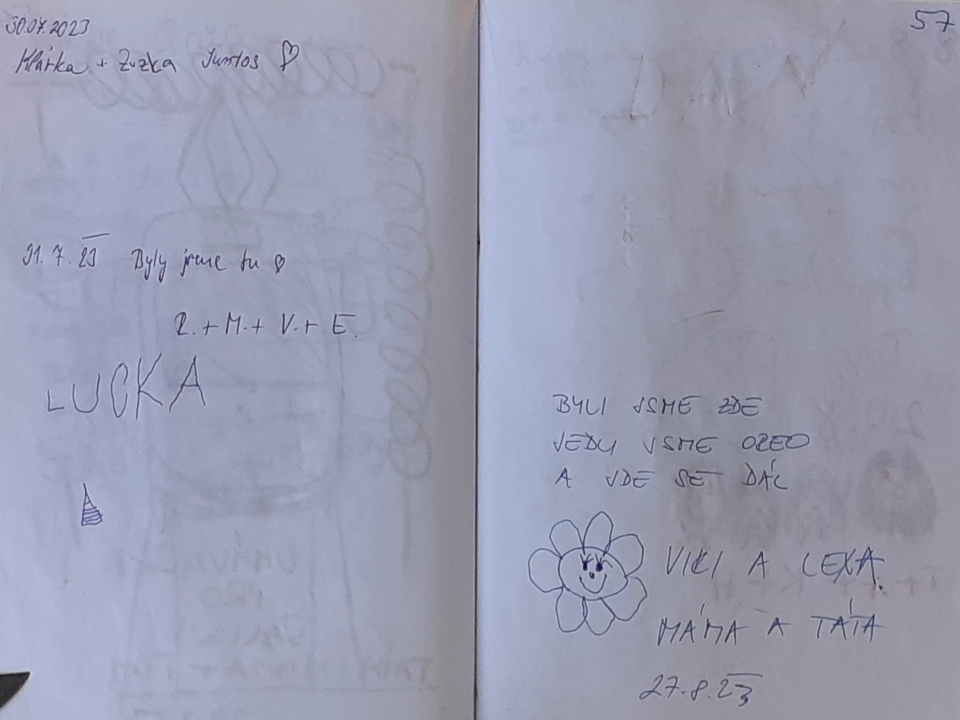 30.07.2023
Klárka + Zuzka Juntos
31.7.23 Byly jsme tu
Z.+M.+V.+E.
LUCKA
57
BYLI JSME ZDE
JEDLI JSME OREO
A JDE SE DÁL
VIKI A LEXA
MÁMA A TÁTA
27.8.23